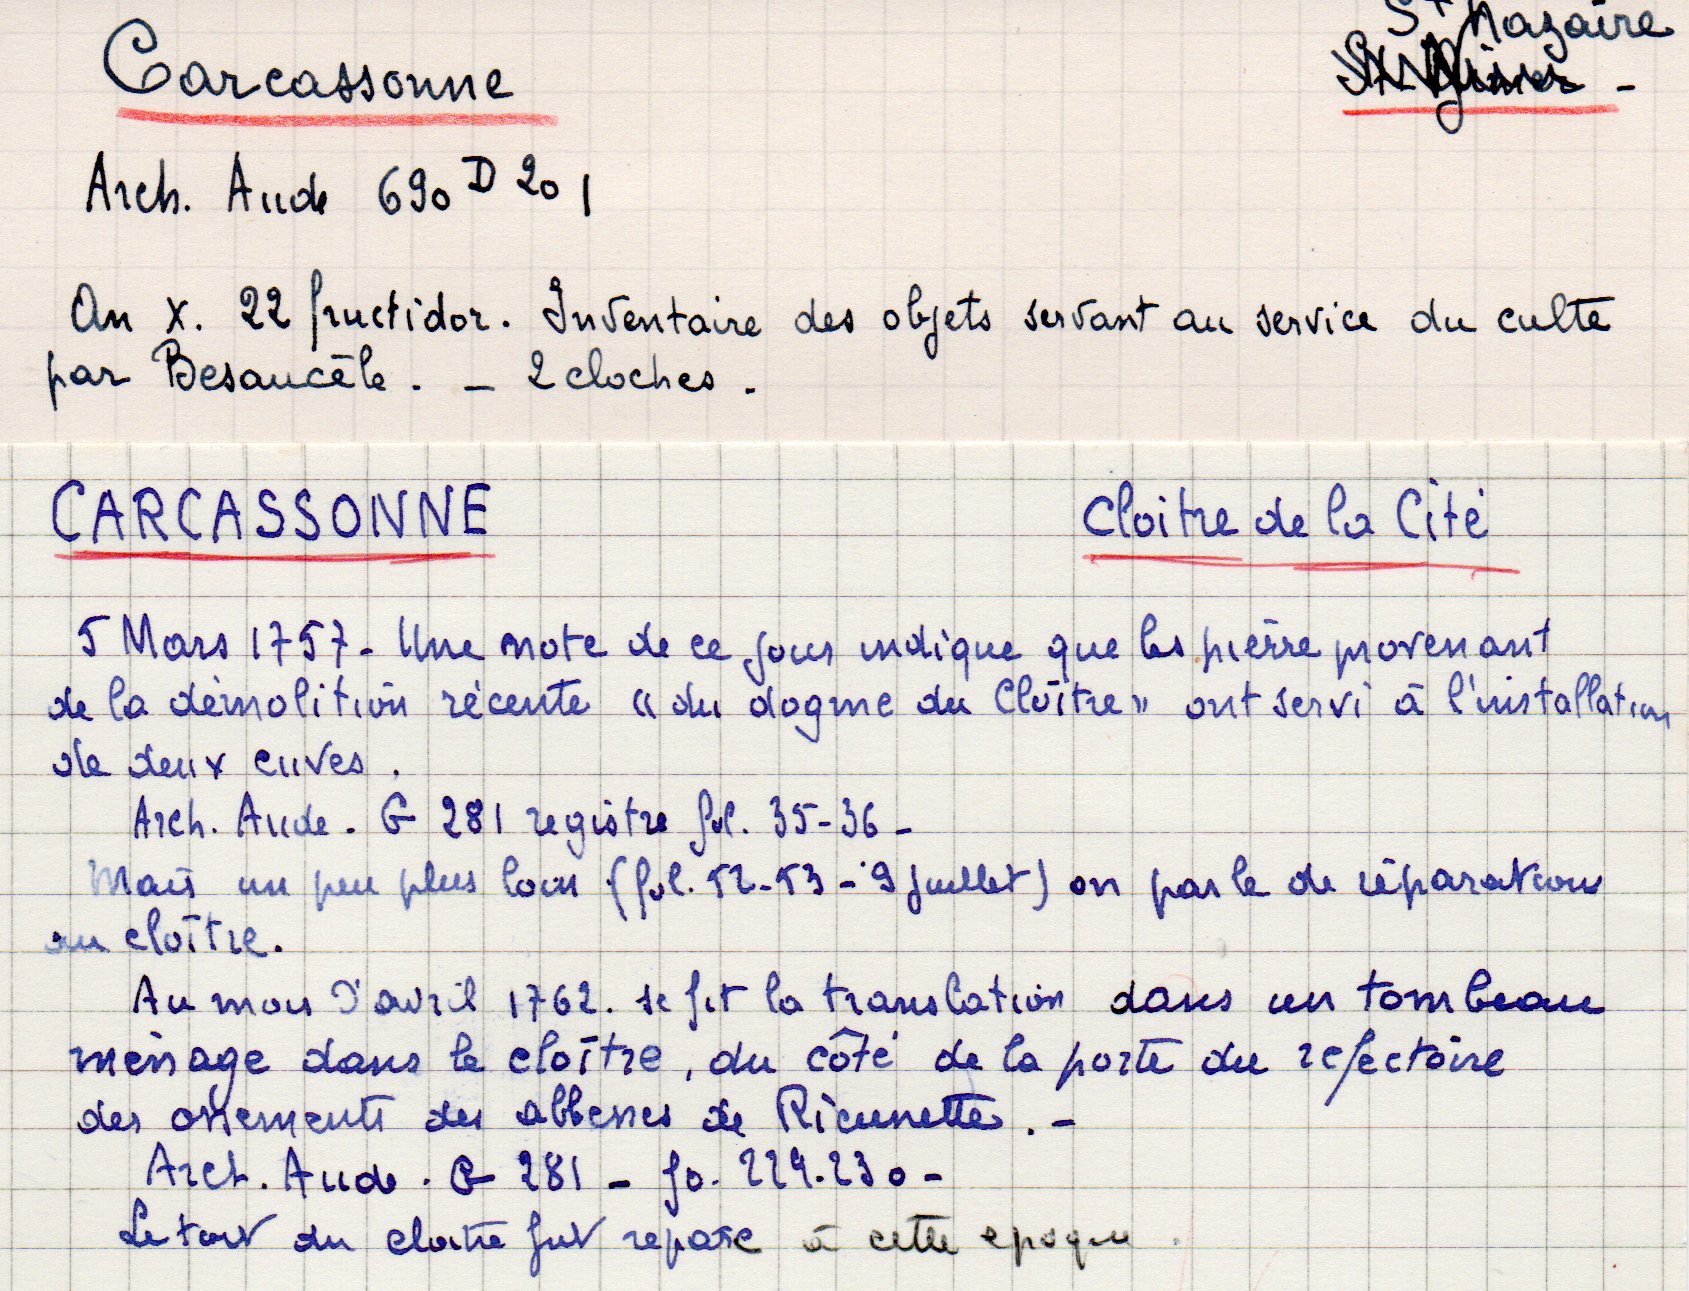 Carcassonne
St Nazaire
Arch. Aude 690 D 20 1
An X. 22 fructidor. Inventaire des objets servant au service du culte
par Besaucèle. - 2 cloches.
CARCASSONNE
Cloitre de la Cité
5 Mars 1757 - Une note de ce jour indique que les pierre provenant
de la démolition récente "du dogme du Cloître" ont servi à l'installation
de deux cuves.
Arch. Aude. G 281 registre fol. 35-36 -
Mais un peu plus loin (fol. 52-53 - 9 juillet) on parle de réparations
au cloître.
Au mois d'avril 1762. se fit la translation dans un tombeau
ménagé dans le cloître, du côté de la porte du refectoire
des ossements des abbesses de Rieunette. -
Arch. Aude. G 281 - fo. 229.230 -
Le toit du cloitre fut reparé à cette epoque.